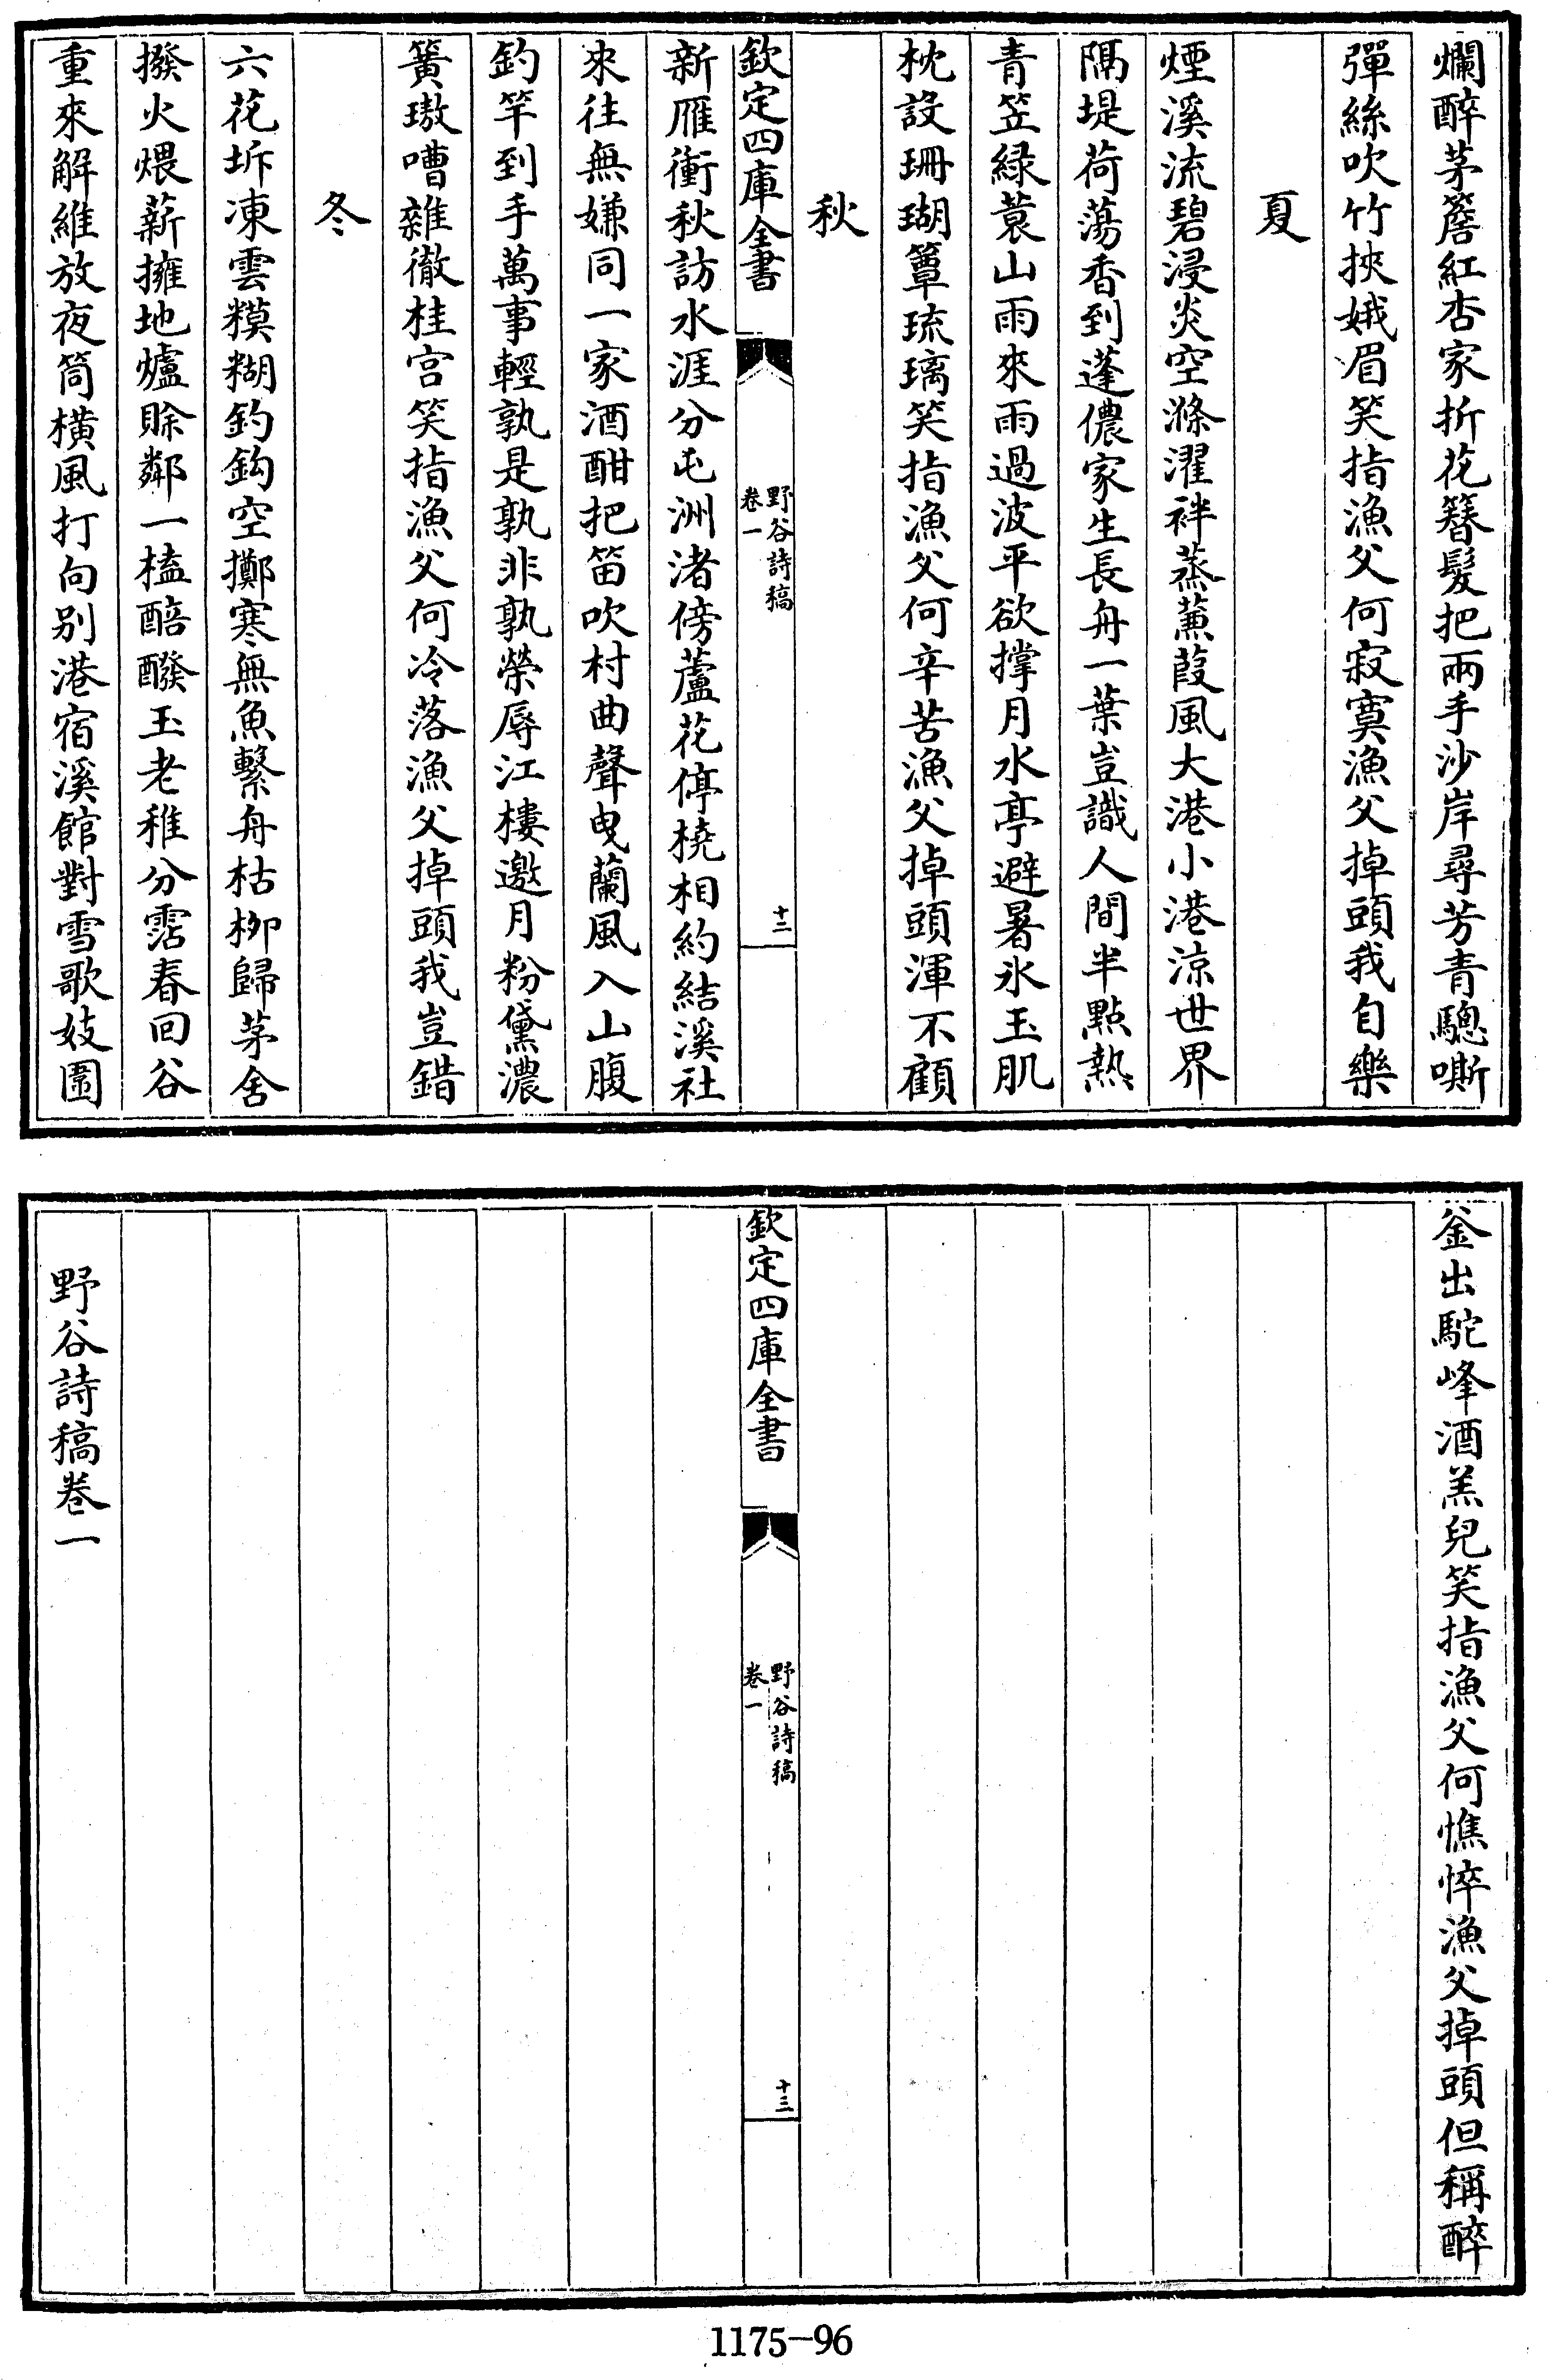 爛醉茅簷紅杏家折花簪髮把兩手沙岸尋芳青驄嘶
彈絲吹竹挾娥眉笑指漁父何寂寞漁父掉頭我自樂
夏
煙溪流碧浸炎空滌濯袢蒸蒹葭風大港小港涼世界
隔堤荷蕩香到蓬儂家生長舟一葉豈識人間半點熱
青笠緑蓑山雨來雨過波平欲撑月水亭避暑氷玉肌
枕設珊瑚簟琉璃笑指漁父何辛苦漁父掉頭渾不顧
秋
欽定四庫全書
野谷詩稿
卷一
十二
新雁衝秋訪水涯分屯洲渚傍蘆花停橈相約結溪社
來往無嫌同一家酒酣把笛吹村曲聲曵蘭風入山腹
釣竿到手萬事輕孰是孰非孰榮辱江樓邀月粉黛濃
簧璈嘈雜徹桂宫笑指漁父何冷落漁父掉頭我豈錯
冬
六花坼凍雲糢糊釣鈎空擲寒無魚繫舟枯柳歸茅舍
撥火煨薪擁地爐賒鄰一榼醅醱玉老稚分霑春回谷
重來解維放夜筒横風打向别港宿溪館對雪歌妓圍
釡出駝峰酒羔兒笑指漁父何憔悴漁父掉頭但稱醉
欽定四庫全書
野谷詩稿
卷一
十三
野谷詩稿卷一
1175-96